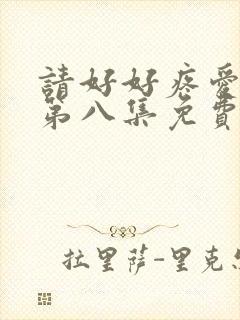 請好好疼愛
第八集免費
拉里萨-里克